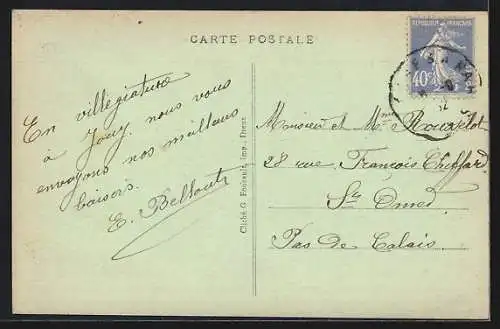 CARTE POSTALE
REPUBLIQUE FRANÇAISE
40c
En villégiature
à Jouy, nous vous
envoyons nos meilleurs
baisers.
E.
Cliché G. Foucault, Imp., Dreux
Monsieur et Mme
28 rue François
St Omer
Pas de Calais